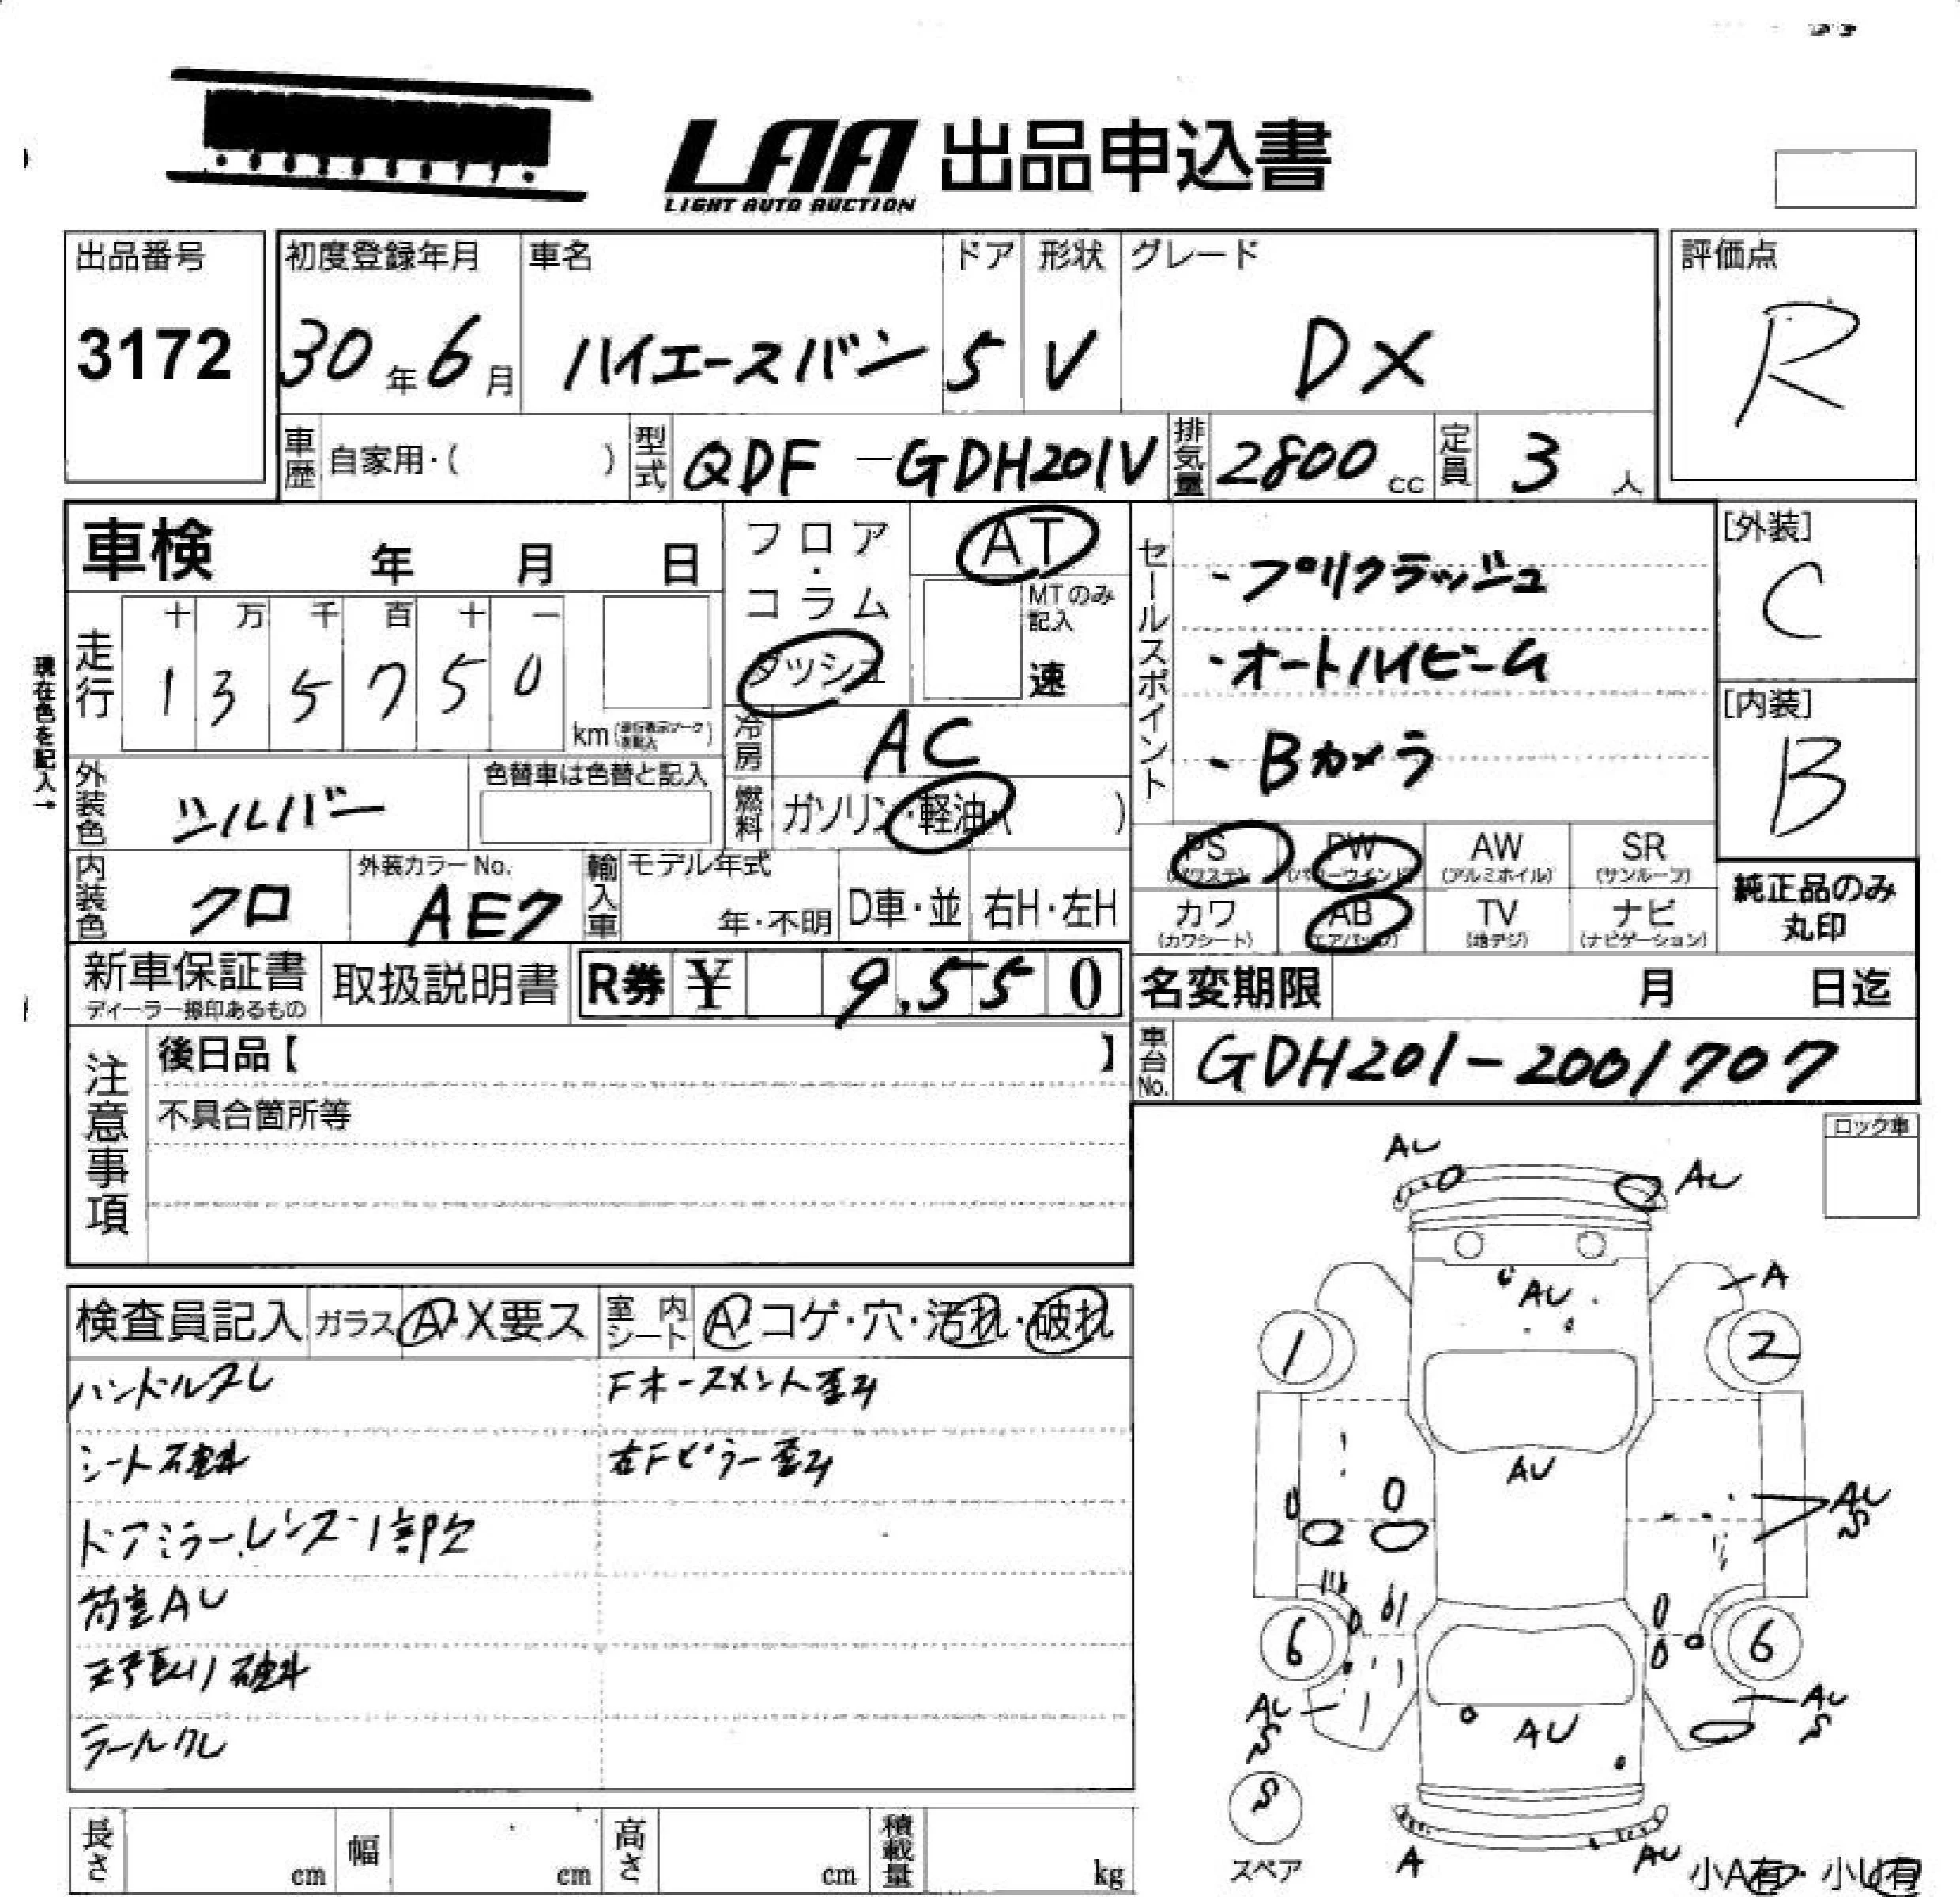 LAA 出品申込書
LIGHT AUTO AUCTION
出品番号 初度登録年月 車名 ドア 形状 グレード 評価点
3172 30年6月 ハイエースバン 5 V DX R
車歴 自家用・( ) 型式 QDF-GDH201V 排気量 2800cc 定員 3人
車検 年 月 日
フロア・コラム
ダッシュ
AT
MTのみ記入
速
走行 十 万 千 百 十 一
1 3 5 7 5 0
km
現在色を記入→
冷房 AC
燃料 ガソリン・軽油・( )
外装色 シルバー
色替車は色替と記入
内装色 クロ
外装カラーNo. AEク
輸入車 モデル年式 年・不明 D車・並 右H・左H
セールスポイント
・プリクラッシュ
・オートハイビーム
・Bカメラ
[外装]
C
[内装]
B
PS (パワステ) PW (パワーウインド) AW (アルミホイル) SR (サンルーフ)
カワ (カワシート) AB (エアバッグ) TV (地デジ) ナビ (ナビゲーション)
純正品のみ丸印
新車保証書
ディーラー捺印あるもの
取扱説明書
R券 ¥ 9,550
名変期限 月 日迄
車台No. GDH201-2001707
注意事項
後日品【 】
不具合箇所等
ロック車
検査員記入 ガラス A・X要ス 室内シート A・コゲ・穴・汚れ・破れ
ハンドルスレ
Fホースメント歪み
シート破れ
右Fピラー歪み
ドアミラーレンズ1部欠
荷室AU
天張り破れ
テールワレ
AU
AU
AU
A
1
2
AU
AU
S
6
6
AU
S
AU
AU
S
S
スペア
A
AU
小A有・小U有
長さ cm 幅 cm 高さ cm 積載量 kg